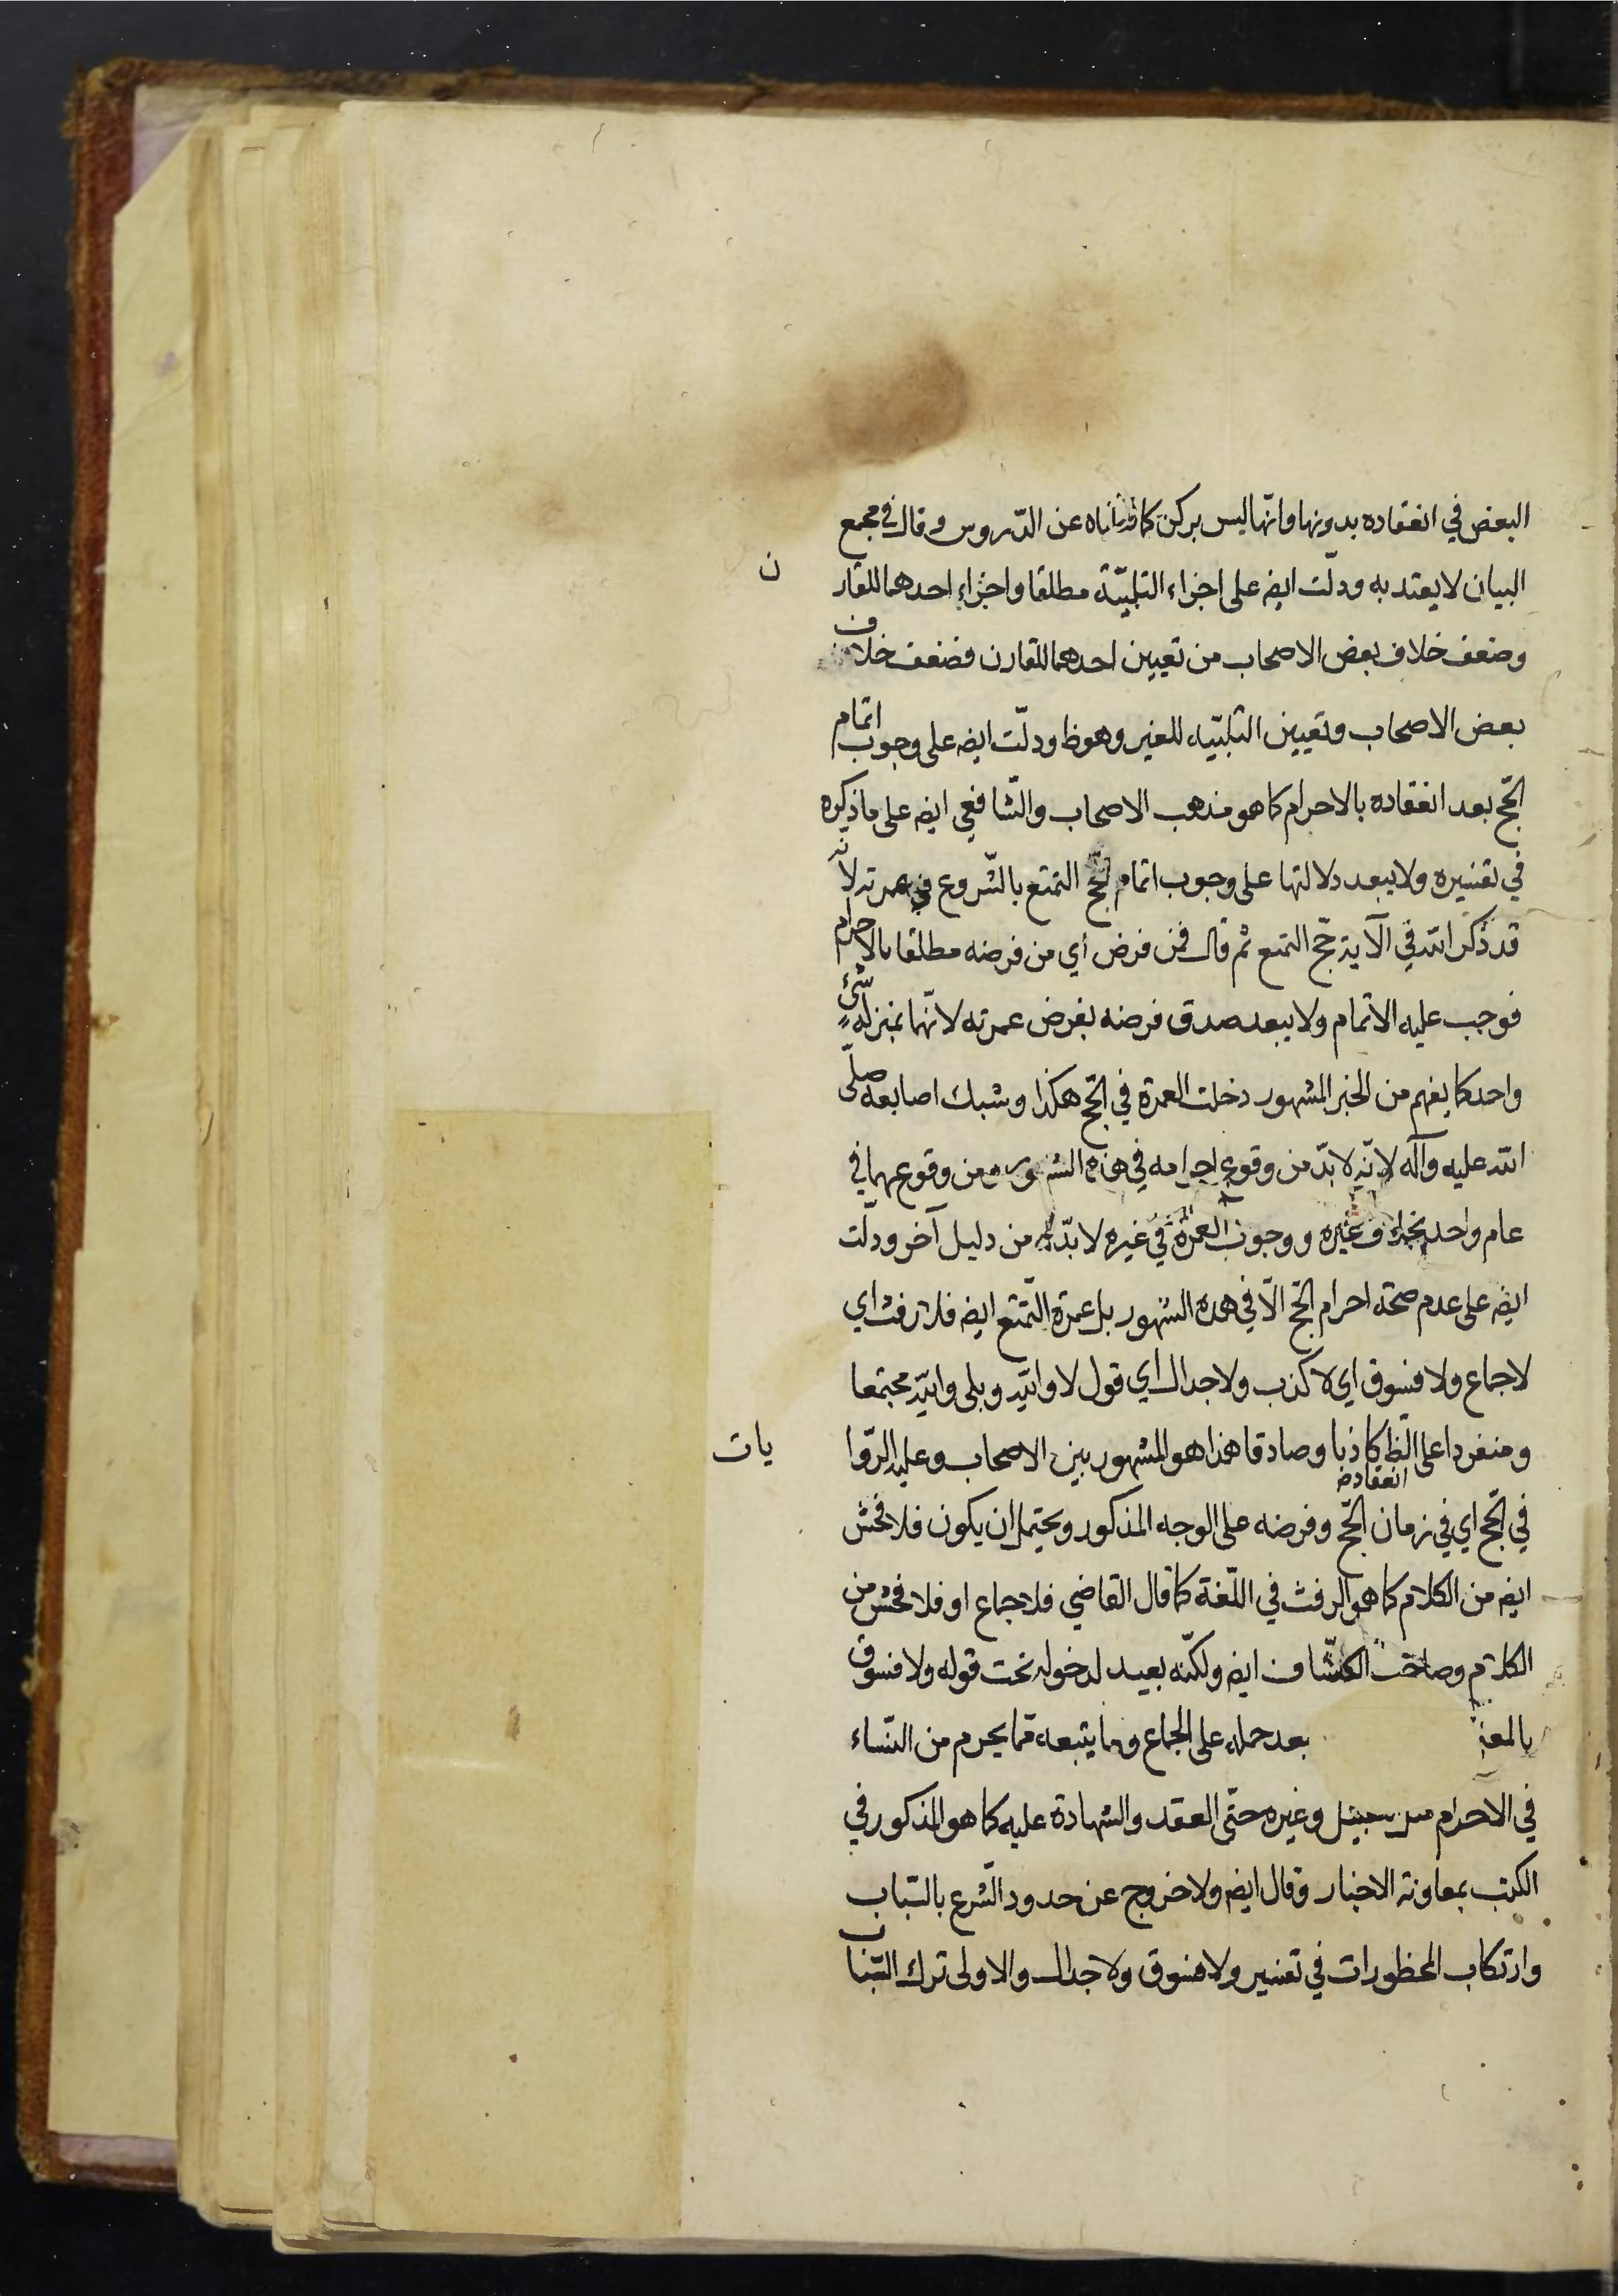 البعض في انعقاده بدونها وانّها ليس بركن كما نقلناه عن الدّروس وقال في مجمع
البيان لا يعتد به ودلّت ايضه على اجزاء التلبيّة مطلقا واجزاء احدهما للقارن
وضعف خلاف بعض الاصحاب من تعيين احدهما للقارن فضعف خلاف
بعض الاصحاب وتعيين التلبيّه للغير وهو ظ ودلّت ايضه على وجوب اتمام
الحّج بعد انعقاده بالاحرام كما هو مذهب الاصحاب والشّافعي ايضه على ما ذكره
في تفسيره ولا يبعد دلالتها على وجوب اتمام حّج التمتع بالشّروع في عمرته لانه
قد ذكر الله في الآية حّج التمتع ثم قال فمن فرض أي من فرضه مطلقا بالاحرام
فوجب عليه الاتمام ولا يبعد صدق فرضه بفرض عمرته لانّهما بمنزله شئ
واحد كما يفهم من الخبر المشهور دخلت العمرة في الحّج هكذا وشبك اصابعه صلّى
الله عليه وآله لانّه لا بدّ من وقوع احرامه في هذه الشهور ومن وقوعهما في
عام واحد بخلاف غيره ووجوب العمرة في غيره لا بدّ له من دليل آخر ودلّت
ايضه على عدم صحة احرام الحّج الّا في هذه الشهور بل عمرة التّمتع ايضه فلا رفث اي
لا جماع ولا فسوق اي لا كذب ولا جدال اي قول لا والله وبلى والله مجتمعا
ومنفردا على الظ كاذبا وصادقا هذا هو المشهور بين الاصحاب وعليه الرّوايات
في الحّج اي في زمان انعقاده الحّج وفرضه على الوجه المذكور ويحتمل ان يكون فلا فحش
ايضه من الكلام كما هو الرفث في اللّغة كما قال القاضي فلا جماع او فلا فحش من
الكلام وصاحب الكشّاف ايضه ولكنّه بعيد لدخوله تحت قوله ولا فسوق
بالمعنى بعد حمله على الجماع وما يتبعه ممّا يحرم من النّساء
في الاحرام من تقبيل وغيره حتّى العقد والشهادة عليه كما هو المذكور في
الكتب بمعاونة الاخبار وقال ايضه ولا خروج عن حدود الشّرع بالسّباب
وارتكاب المحظورات في تفسير ولا فسوق ولا جدال والاولى ترك التّنا